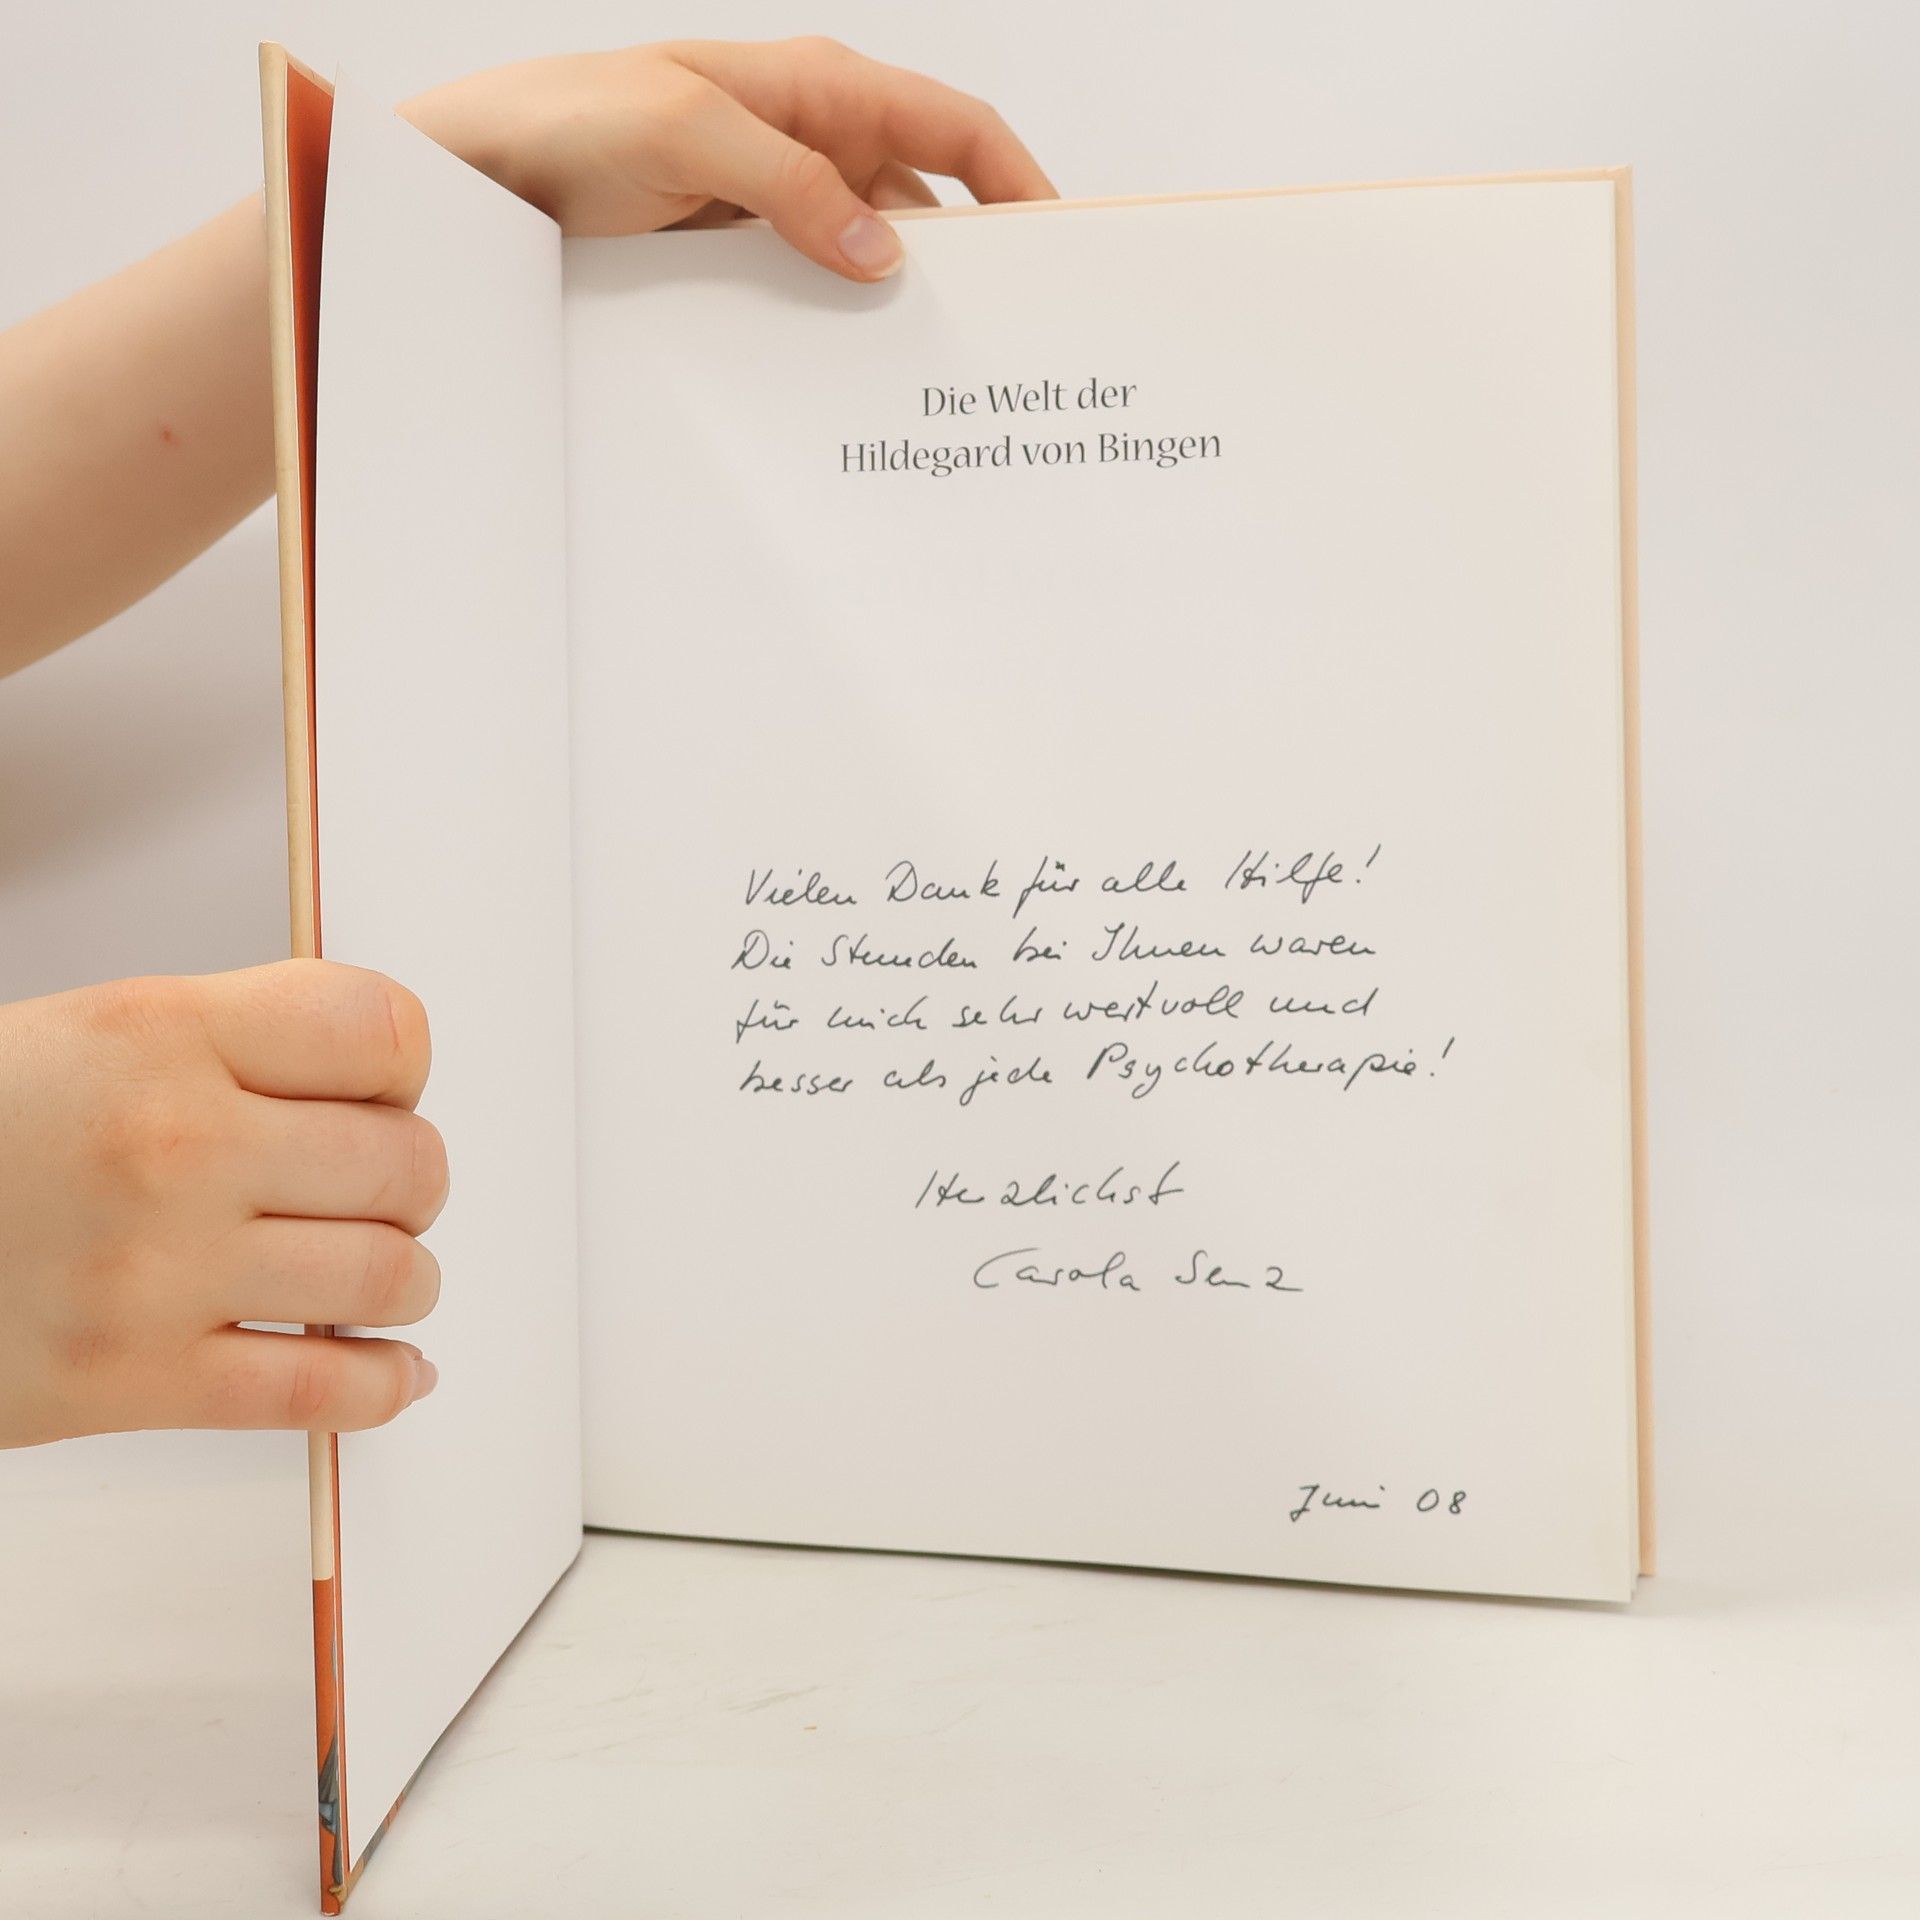 Die Welt der
Hildegard von Bingen
Vielen Dank für alle Hilfe!
Die Stunden bei Ihnen waren
für mich sehr wertvoll und
besser als jede Psychotherapie!
Herzlichst
Carola Senz
Juni 08